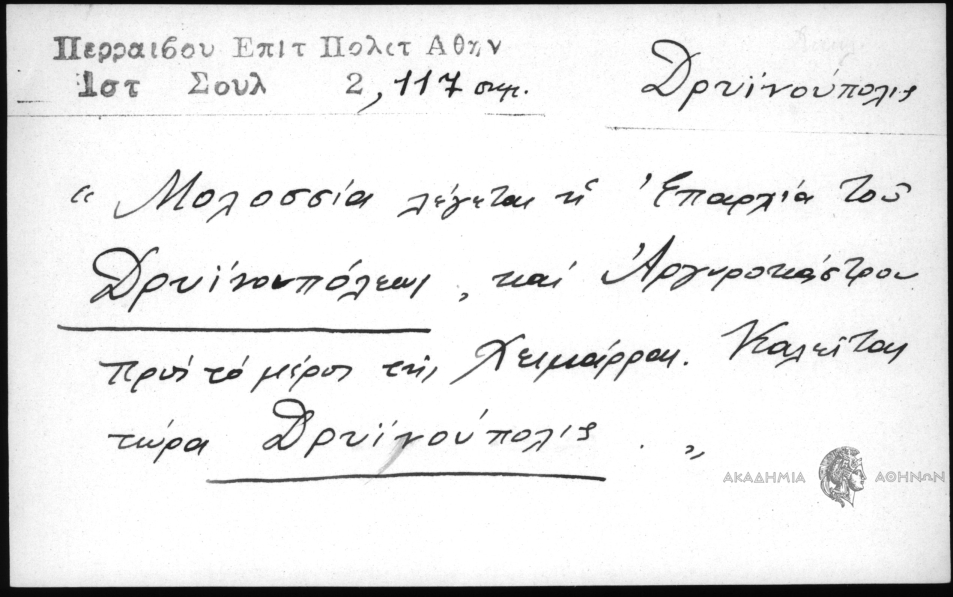 Περραιβου Επιτ Πολιτ Αθην
Ιστ Σουλ 2, 117 σημ.
Δρυϊνούπολις
“ Μολοσσία λέγεται ἡ Ἐπαρχία τοῦ
Δρυϊνουπόλεως, καί Ἀργυροκάστρου
πρός τό μέρος τῆς Χειμάρρας. Καλεῖται
τώρα Δρυϊνούπολις . „
ΑΚΑΔΗΜΙΑ ΑΘΗΝΩΝ